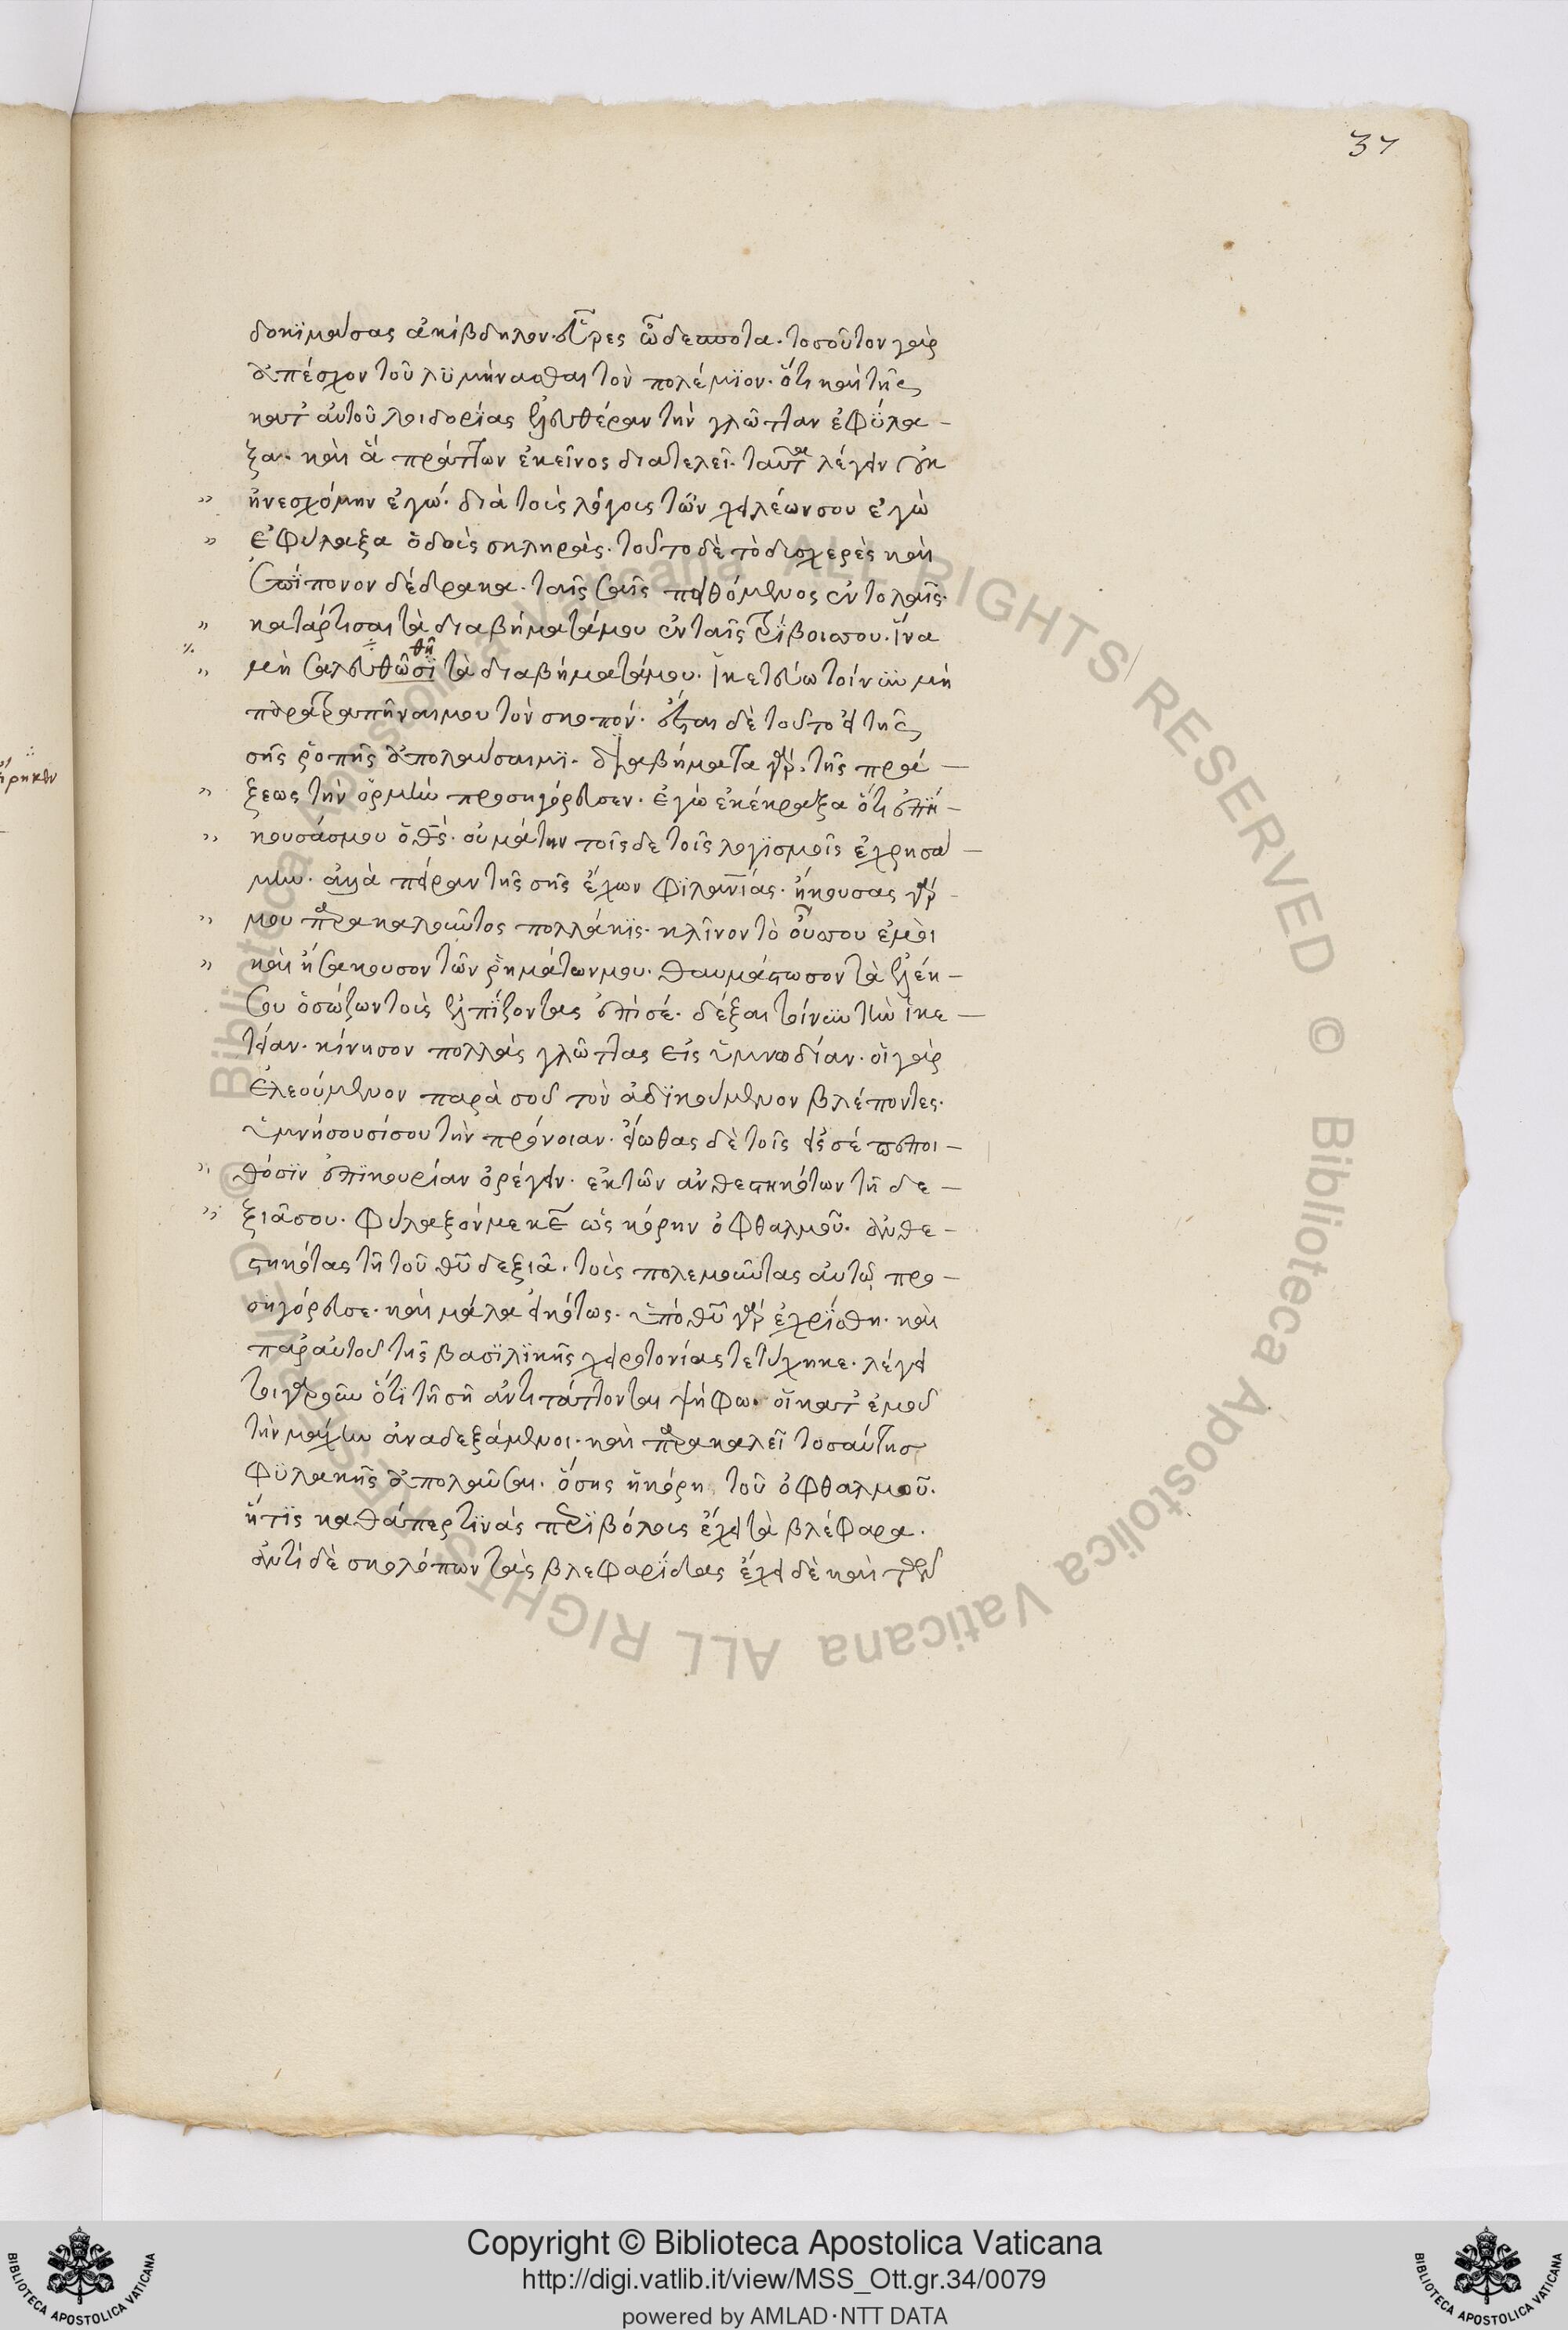 37
δοκϊμάσας ἀκίβδηλον εὗρες ὦ δέσποτα. τοσοῦτον γὰρ
ἀπέσχον τοῦ λϋμήνασθαι τὸν πολέμϊον. ὅτι καὶ τῆς
κατ αὐτοῦ λοιδορίας ἐλευθέραν τὴν γλῶτταν ἐφύλα -
ξα. καὶ ἃ πράττων ἐκεῖνος διατελεῖ. ταῦτα λέγειν οὐκ
ἠνεσχόμην ἐγώ. διὰ τοὺς λόγους τῶν χειλέων σου ἐγὼ
ἐφύλαξα ὁδοὺς σκληράς. τοῦτο δὲ τὸ δυσχερὲς καὶ
ἐπίπονον δέδρακα. ταῖς σαῖς πειθόμενος ἐντολαῖς.
κατάρτισαι τὰ διαβήματά μου ἐν ταῖς τρίβοις σου. ἵνα
θῆ
μὴ σαλευθῶσϊ τὰ διαβήματά μου. ἱκετεύω τοίνυν μὴ
παρατραπῆναι μου τὸν σκοπόν. ἔσται δὲ τοῦτο εἰ τῆς
σῆς ῥοπῆς ἀπολαύσαιμϊ. διαβήματα γὰρ. τῆς πρά -
ξεως τὴν ὁρμὴν προσηγόρευσεν. ἐγὼ ἐκέκραξα ὅτι ἐπή -
κουσάς μου ὁ θς. οὐ μάτην τοῖσδε τοῖς λογϊσμοῖς ἐχρησά -
μην. ἀλλὰ πεῖραν τῆς σῆς ἔχων φϊλανιας. ἤκουσας γάρ -
μου παρακαλοῦντος πολλάκϊς. κλῖνον τὸ οὖς σου ἐμοὶ
καὶ εἰσάκουσον τῶν ῥημάτων μου. θαυμάστωσον τὰ ἐλέη -
σου ὁ σώζων τοὺς ἐλπίζοντας ἐπὶ σέ. δέξαι τοίνυν τὴν ἱκε -
τείαν. κίνησον πολλὰς γλώττας εἰς ὑμνωδίαν. οἱ γὰρ
ἐλεούμενον παρὰ σοῦ τὸν ἀδϊκούμενον βλέποντες.
ὑμνήσουσί σου τὴν πρόνοιαν. εἴωθας δὲ τοῖς εἰς σέ πεποι -
θόσϊν ἐπϊκουρίαν ὀρέγειν. ἐκ τῶν ἀνθεστηκότων τῆ δε -
ξιᾶ σου. φύλαξόν με κε ὡς κόρην ὀφθαλμοῦ. ἀνθε -
στηκότας τῆ τοῦ θῦ δεξιᾶ. τοὺς πολεμοῦντας αὐτῷ προ -
σηγόρευσε. καὶ μάλα εἰκότως. ὑπὸ θῦ γὰρ ἐχρίσθη. καὶ
παρ αὐτοῦ τῆς βασϊλϊκῆς χειροτονίας τετύχηκε. λέγει
τοιγαροῦν ὅτι τῆ σῆ ἀντιτάττονται ψήφω. οἱ κατ ἐμοῦ
τὴν μάχην ἀναδεξάμενοι. καὶ παρακαλεῖ τοσαύτης
φϋλακῆς ἀπολαῦσαι. ὅσης ἡ κόρη τοῦ ὀφθαλμοῦ.
ἥτϊς καθάπερ τϊνὰς περϊβόλους ἔχει τὰ βλέφαρα.
ἀντὶ δὲ σκολόπων τὰς βλεφαρίδας ἔχει δὲ καὶ
Copyright © Biblioteca Apostolica Vaticana
http://digi.vatlib.it/view/MSS_Ott.gr.34/0079
powered by AMLAD·NTT DATA
BIBLIOTECA APOSTOLICA VATICANA
BIBLIOTECA APOSTOLICA VATICANA
© Biblioteca Apostolica Vaticana ALL RIGHTS RESERVED © Biblioteca Apostolica Vaticana ALL RIGHTS RESERVED